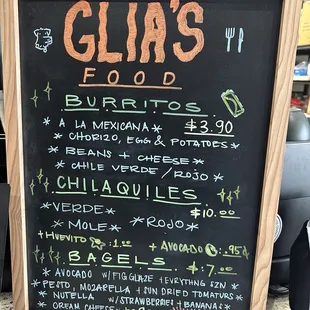 GLIA'S
FOOD
BURRITOS
* A LA MEXICANA * $3.90
* CHORIZO, EGG & POTATOES *
* BEANS + CHEESE *
* CHILE VERDE / ROJO *
CHILAQUILES
* VERDE * $10.00
* MOLE * * ROJO *
+ HUEVITO 1.00 + AVOCADO .95¢
BAGELS $7.00
* AVOCADO W/ FIG GLAZE + EVRYTHNG SZN
* PESTO, MOZARELLA + SUN DRIED TOMATURS *
* NUTELLA W/ STRAWBERRIES + BANANAS *
* CREAM CHEESE